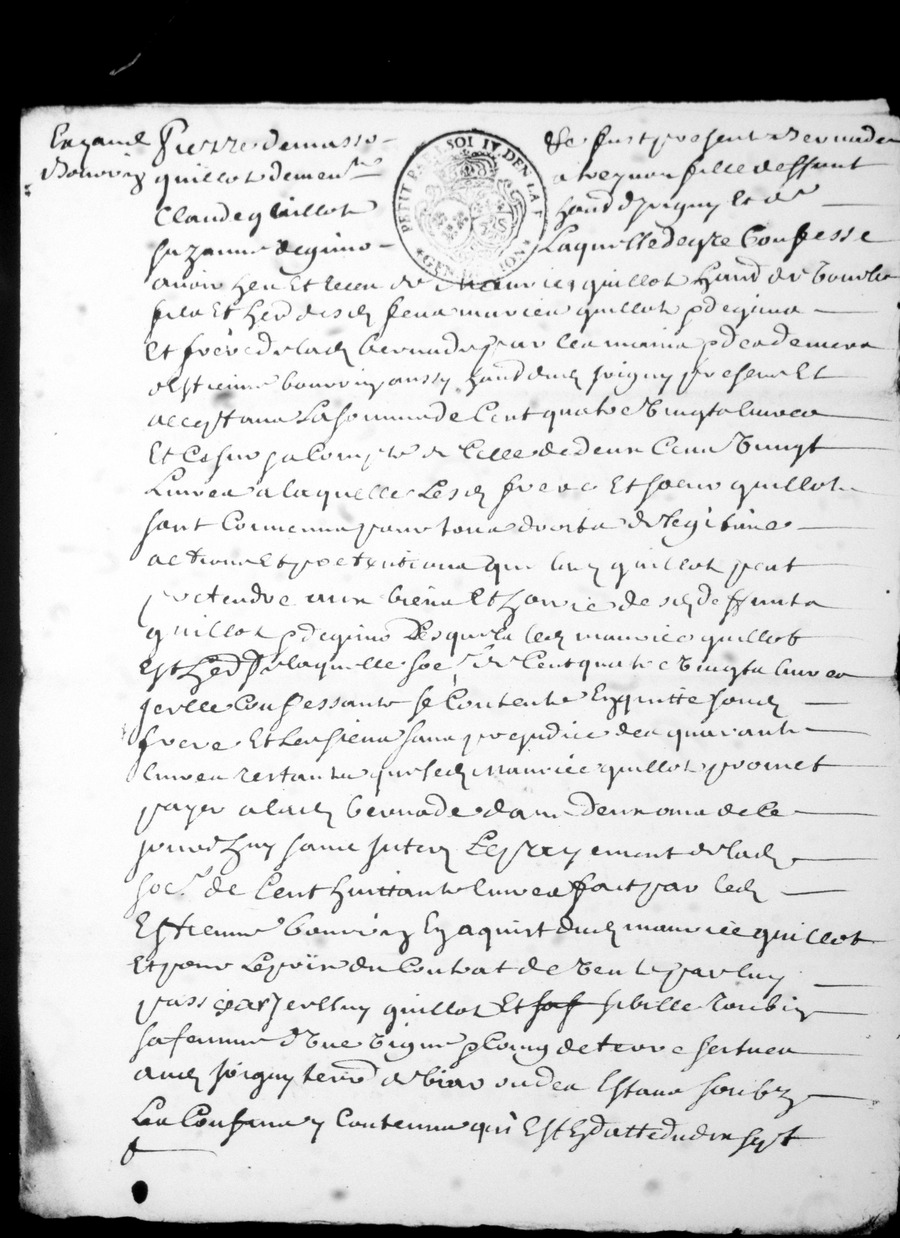 Pierre demasso
quillot demeur
Claude quillot
suzanne degimo
PETIT PAP. SOI IV DEN LA F
GEN
se fust present Bernade
fille deffunt
hand d'Irigny et de
Laquelle de gre Confesse
avoir heu et receu de Maurice quillot hand de
fils et her desd feux maurice quillot p degimo
Et frere de lad bernade par les mains p de
d'Estienne bouvier aussy hand dud Irigny present Et
acceptant La somme de Cent quatre vingts livres
Et Ce sur sa Compte de Celle de deux Cent Vingt
Livres a laquelle Lesd frere Et soeur quillot
sont Convenus pour tous droits de legitime
actions Et pretentions que lad quillot peut
pretendre aux biens Et hoirie desd deffunts
quillot p degimo Desquels led maurice quillot
Est her de laquelle so.e de Cent quatre vingts livres
jcelle Confessante se Contente En quitte sond
frere Et Les siens sans prejudice des quarante
livres restants que led Maurice quillot promet
payer a lad bernade dans deux ans de Ce
jourd'huy sans Interest Le payement de lad
so.e de Cent huittante livres fait par led
Estienne bouvier En aquit dud maurice quillot
Et pour Le prix du Contrat de vente par luy
passé par jcelluy quillot Et sibille
sa femme d'une vigne p loing de terre scituez
aud Irigny terre de Estans soubz
Les Confins y Contenus qui Est En datte du dix sept